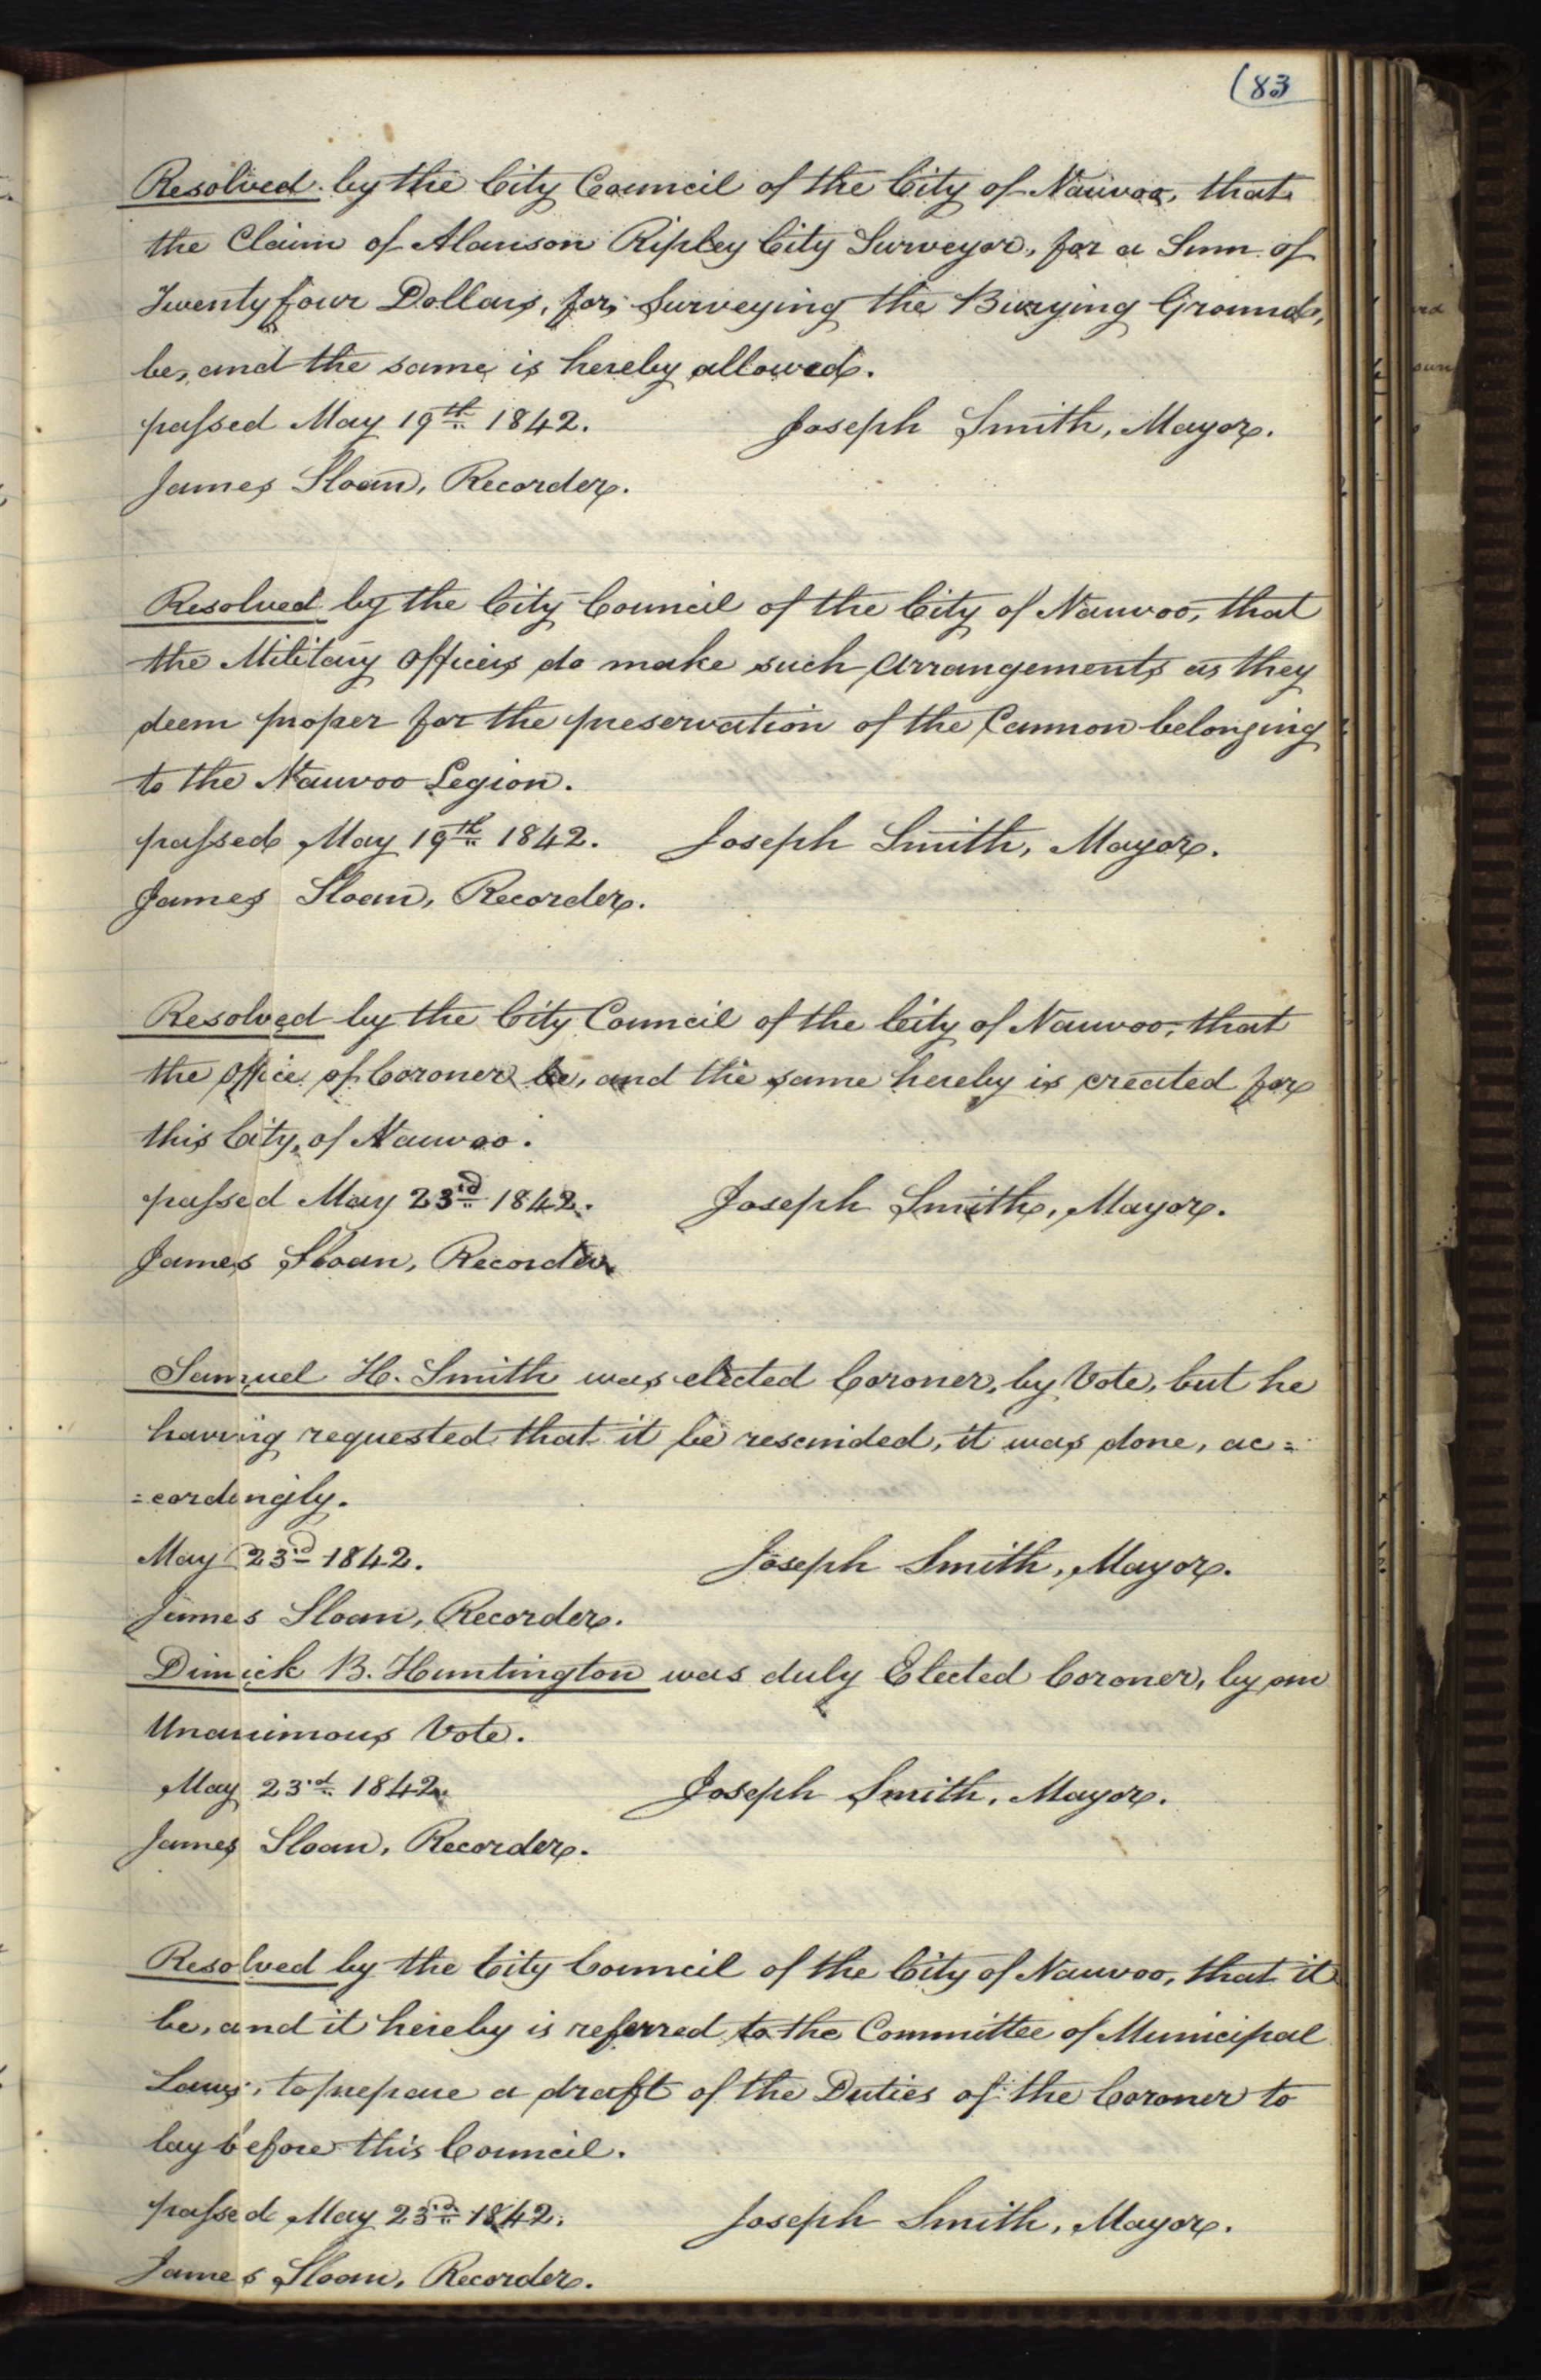 (83
Resolved by the City Council of the City of Nauvoo, that
the Claim of Alanson Ripley City Surveyor, for a Sum of
Twenty four Dollars, for Surveying the Burying Ground,
be, and the same is hereby allowed.
passed May 19th 1842. Joseph Smith, Mayor.
James Sloan, Recorder.
Resolved by the City Council of the City of Nauvoo, that
the Military Officers do make such Arrangements as they
deem proper for the preservation of the Cannon belonging
to the Nauvoo Legion.
passed May 19th 1842. Joseph Smith, Mayor.
James Sloan, Recorder.
Resolved by the City Council of the City of Nauvoo, that
the office of Coroner be, and the same hereby is created for
this City, of Nauvoo.
passed May 23rd 1842. Joseph Smith, Mayor.
James Sloan, Recorder
Samuel H. Smith was elected Coroner, by Vote, but he
having requested that it be rescinded, it was done, ac=
=cordingly.
May 23rd 1842. Joseph Smith, Mayor.
James Sloan, Recorder.
Dimick B. Huntington was duly Elected Coroner, by an
Unanimous Vote.
May 23rd 1842. Joseph Smith, Mayor.
James Sloan, Recorder.
Resolved by the City Council of the City of Nauvoo, that it
be, and it hereby is referred to the Committee of Municipal
Laws, to prepare a draft of the Duties of the Coroner to
lay before this Council.
passed May 23rd 1842. Joseph Smith, Mayor.
James Sloan, Recorder.